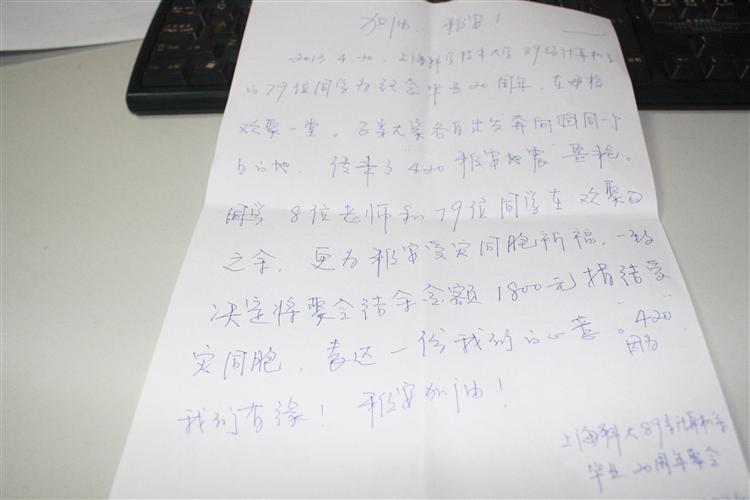 加油,雅安!
2013.4.20,上海科学技术大学89级计算机系
的79位同学为纪念毕业20周年,在母校
欢聚一堂。正当大家各自出发奔向相同一个
目的地,传来了"420雅安地震"噩耗。
同学 8位老师和79位同学在欢聚的
之余,更为雅安受灾同胞祈福,一致
决定将聚会结余金额1800元捐给受
灾同胞,表达一份我们的心意。"420"
因为
我们有缘!雅安加油!
上海科大89级计算机系
毕业20周年聚会